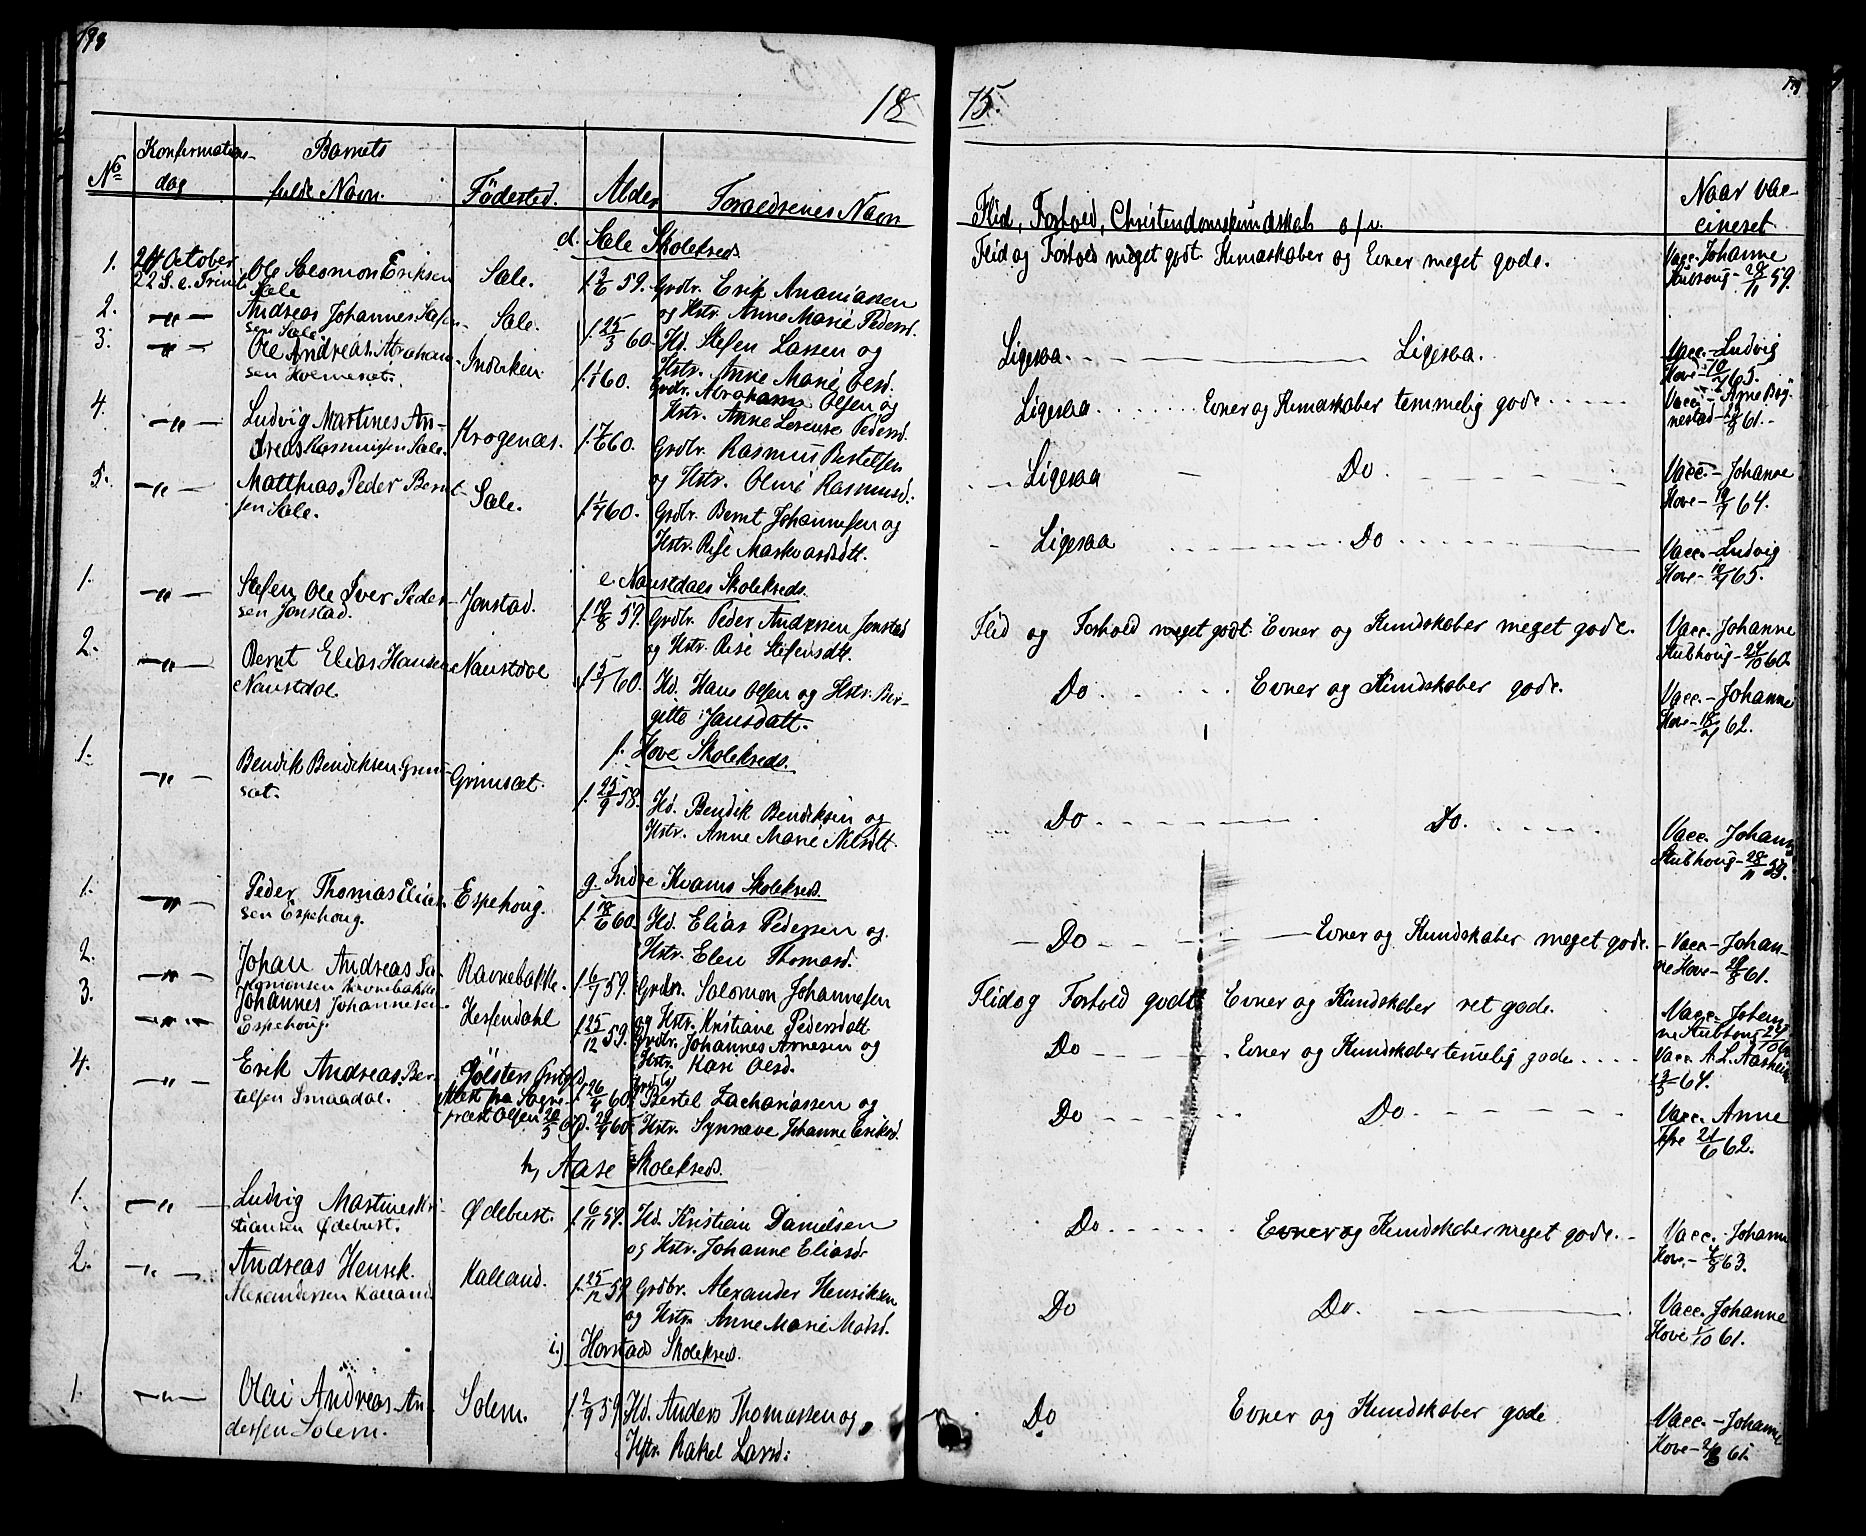 198
18
75.
No Konfirmations- dag
Barnets fulde Navn.
Födested.
Alder
Foraeldrenes Navn
Flid, Forhold, Christendomskundskab o/v.
Naar vac- cineret
d. Sale Skolekreds
1. 24 October 22 S. e. Trinit.
Ole Salomon Eriksen Sale
Sale.
f. 59. Grdbr. Erik Ananiassen
og Hstr. Anne Marie Pedersd.
Flid og Forhold meget godt. Kundskaber og Evner meget gode.
Vacc. Johanne
Stubhoug - 28/11 59.
2. —„—
Andreas Johannes Stefen-
sen Sale.
Sale.
f. 25/3 60. Hd. Stefen Lassen og
Hstr. Anne Marie Olesd.
Ligesaa. — Ligesaa.
Vacc. Ludvig
Hove - 65.
3. —„—
Ole Andreas Abraham-
sen Holmesæt.
Indviken
f. 60.
Grdbr. Abraham Olsen og
Hstr. Anne Lerense Pedersd.
Ligesaa. Evner og Kundskaber temmelig gode.
Vacc. - Agne Bog-
nestad - 61.
4. —„—
Ludvig Martines An-
dreas Rasmussen Sale.
Krogenæs.
f. 60. Grdbr. Rasmus Bertelsen
og Hstr. Oline Rasmusd.
Ligesaa — Do
Vacc. - Johanne
Hove - 64.
5. —„—
Matthias Peder Bernt-
sen Sale.
Sale.
f. 60. Grdbr. Bernt Johannesen og
Hstr. Rise Markvardsdtt.
Ligesaa Do
Vacc. - Ludvig
Hove - 65.
e. Naustdals Skolekreds.
1. —„—
Stefen Ole Iver Peder-
sen Jonstad.
Jonstad.
f. 59. Grdbr. Peder Andersen Jonstad
og Hstr. Rise Stefensdtt.
Flid og Forhold meget godt. Evner og Kundskaber meget gode.
Vacc. - Johanne
Stubhoug - 60.
2. —„—
Bernt Elias Hansen
Naustdal.
Naustdal
f. 60. Hd. Hans Olsen og Hstr. Ber-
gitte Jansdatt.
Do. Evner og Kundskaber gode.
Vacc. - Johanne
Hove - 62.
f. Hove Skolekreds.
1. —„—
Bendik Bendiksen Grim-
sæt.
Grimsæt.
f. 25/9 58. Hd. Bendik Bendiksen og
Hstr. Anne Marie Nilsdtt.
Do Do.
Vacc. Johanne
Stubhoug - 28/11 59.
g. Indre Kvams Skolekreds.
1. —„—
Peder Thomas Elias-
sen Espehoug.
Espehoug.
f. 18/6 60. Hd. Elias Pedersen og
Hstr. Elen Thomasd.
Do Evner og Kundskaber meget gode.
Vacc. - Johan-
ne Hove - 61.
2. —„—
Johan Andreas Sa-
lomonsen Ravnebakke.
Ravnebakke.
f. 6/7 59. Grdbr. Salomon Johannesen
og Hstr. Kristiane Pedersdatt
Flid og Forhold godt. Evner og Kundskaber ret gode.
Vacc. - Johan-
ne Stubhoug
3. —„—
Johannes Johannesen
Espehoug.
Hestendahl
f. 25/12 59. Grdbr. Johannes Arnesen og
Hstr. Kari Olesd.
Do Evner og Kundskaber temelig gode.
Vacc. A. L. Aasheim
64.
4. —„—
Erik Andreas Ber-
telsen Smaadal.
Jölsters
Attest fra Sogne-
præst Olsen
f. 26/4 60. Bertel Zachariassen og
Hstr. Synnøve Johanne Eriksd.
Do Do
Vacc. Anne
21/6 62.
h, Aase Skolekreds.
1. —„—
Ludvig Martines Kri-
stiansen Ødebust.
Ødebust.
f. 6/11 59. Hd. Kristian Danielsen
og Hstr. Johanne Eliasd.
Do. Evner og Kundskaber meget gode.
Vacc. - Johanne
Hove. - 63.
2. —„—
Andreas Henrik
Alexandersen Kalland.
Kalland.
f. 25/12 59. Grdbr. Alexander Henriksen
og Hstr. Anne Marie Madsd.
Do Do.
Vacc. Johanne
Hove 1/10 61.
i.) Horstads Skolekred.
1. —„—
Olai Andreas An-
dersen Solem.
Solem.
f. 2/9 59. Hd. Anders Thomassen og
Hstr. Rakel Larsd.
Do Evner og Kundskaber gode.
Vacc. - Johanne
Hove - 61.